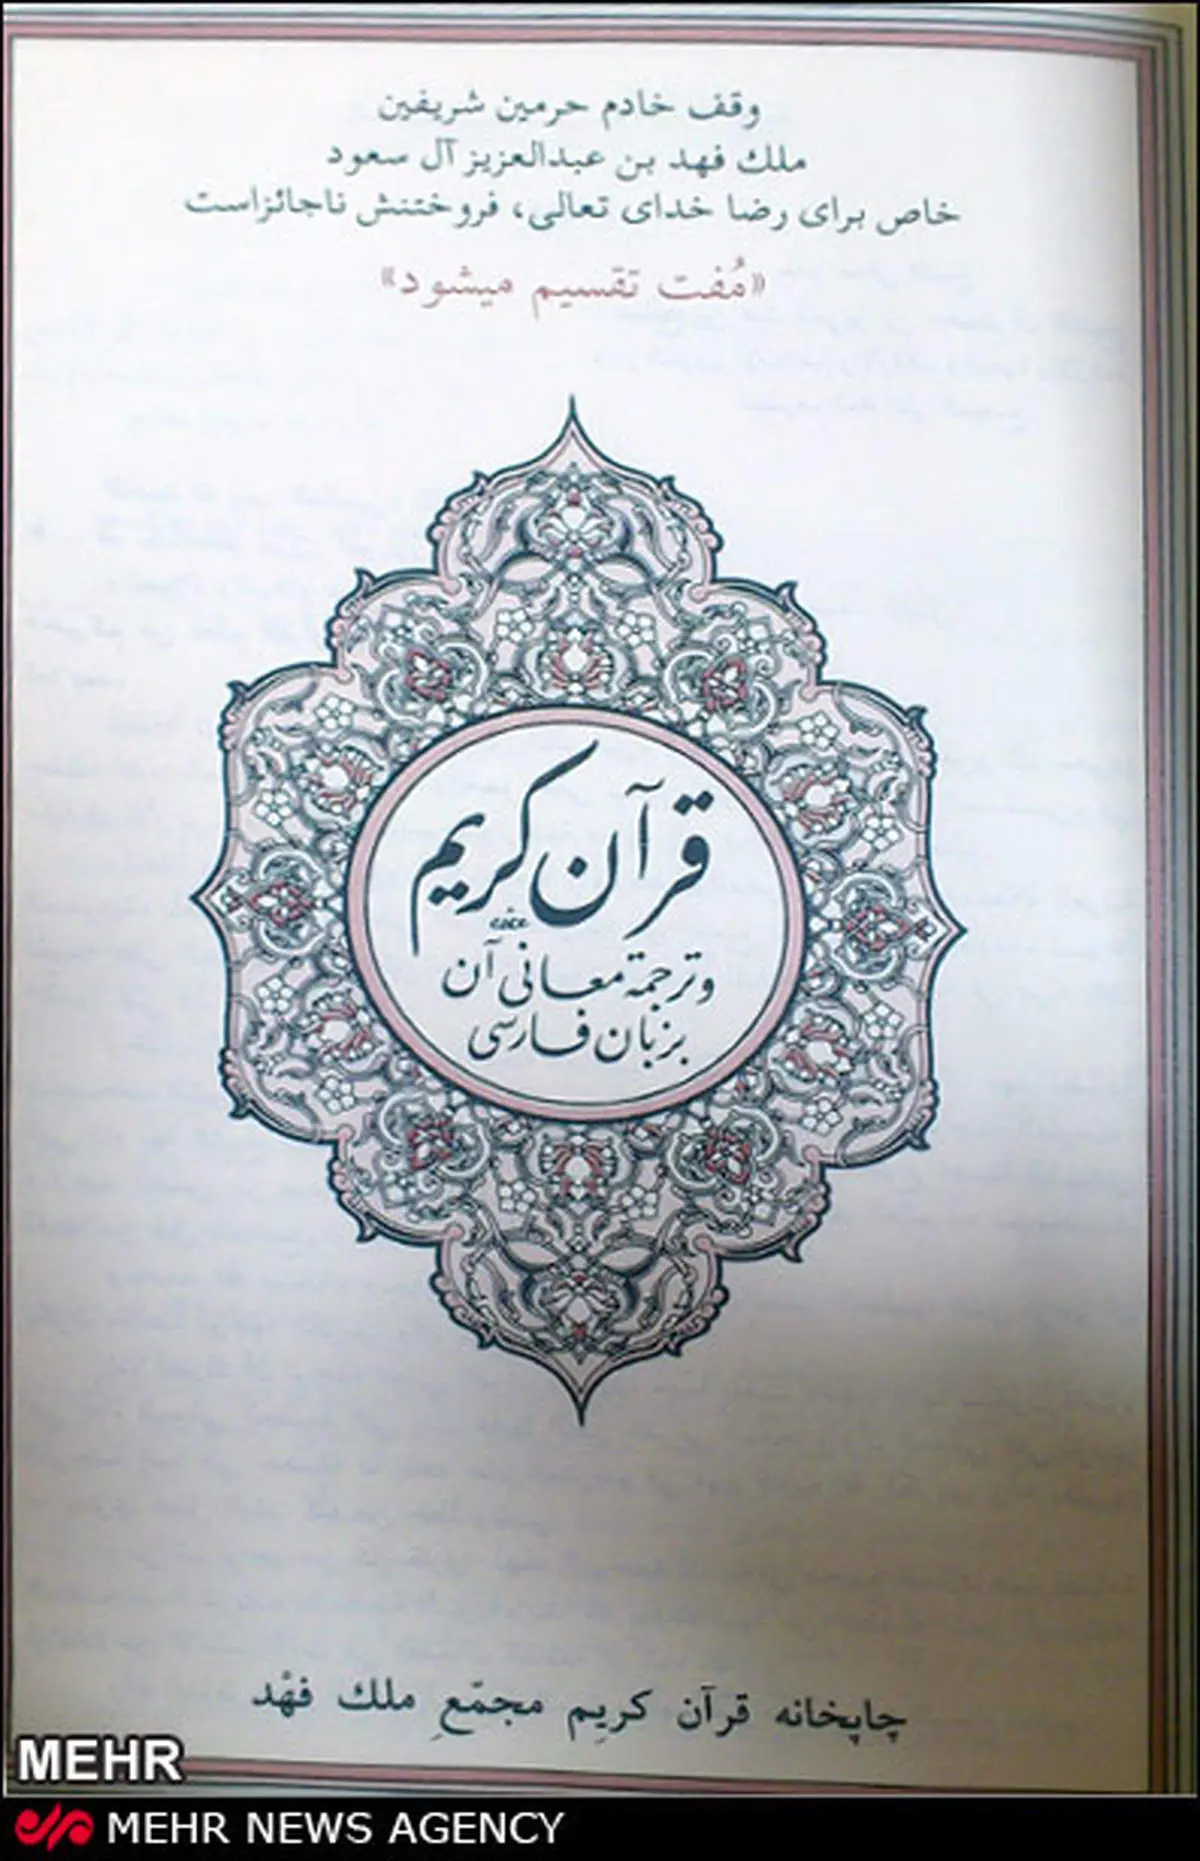 وقف خادم حرمین شریفین
ملك فهد بن عبدالعزیز آل سعود
خاص برای رضا خدای تعالی، فروختنش ناجائزاست
«مُفت تقسیم میشود»
قرآن کریم
و ترجمة معانی آن
بزبان فارسی
چاپخانه قرآن کریم مجمّعِ ملك فهْد
MEHR
MEHR NEWS AGENCY